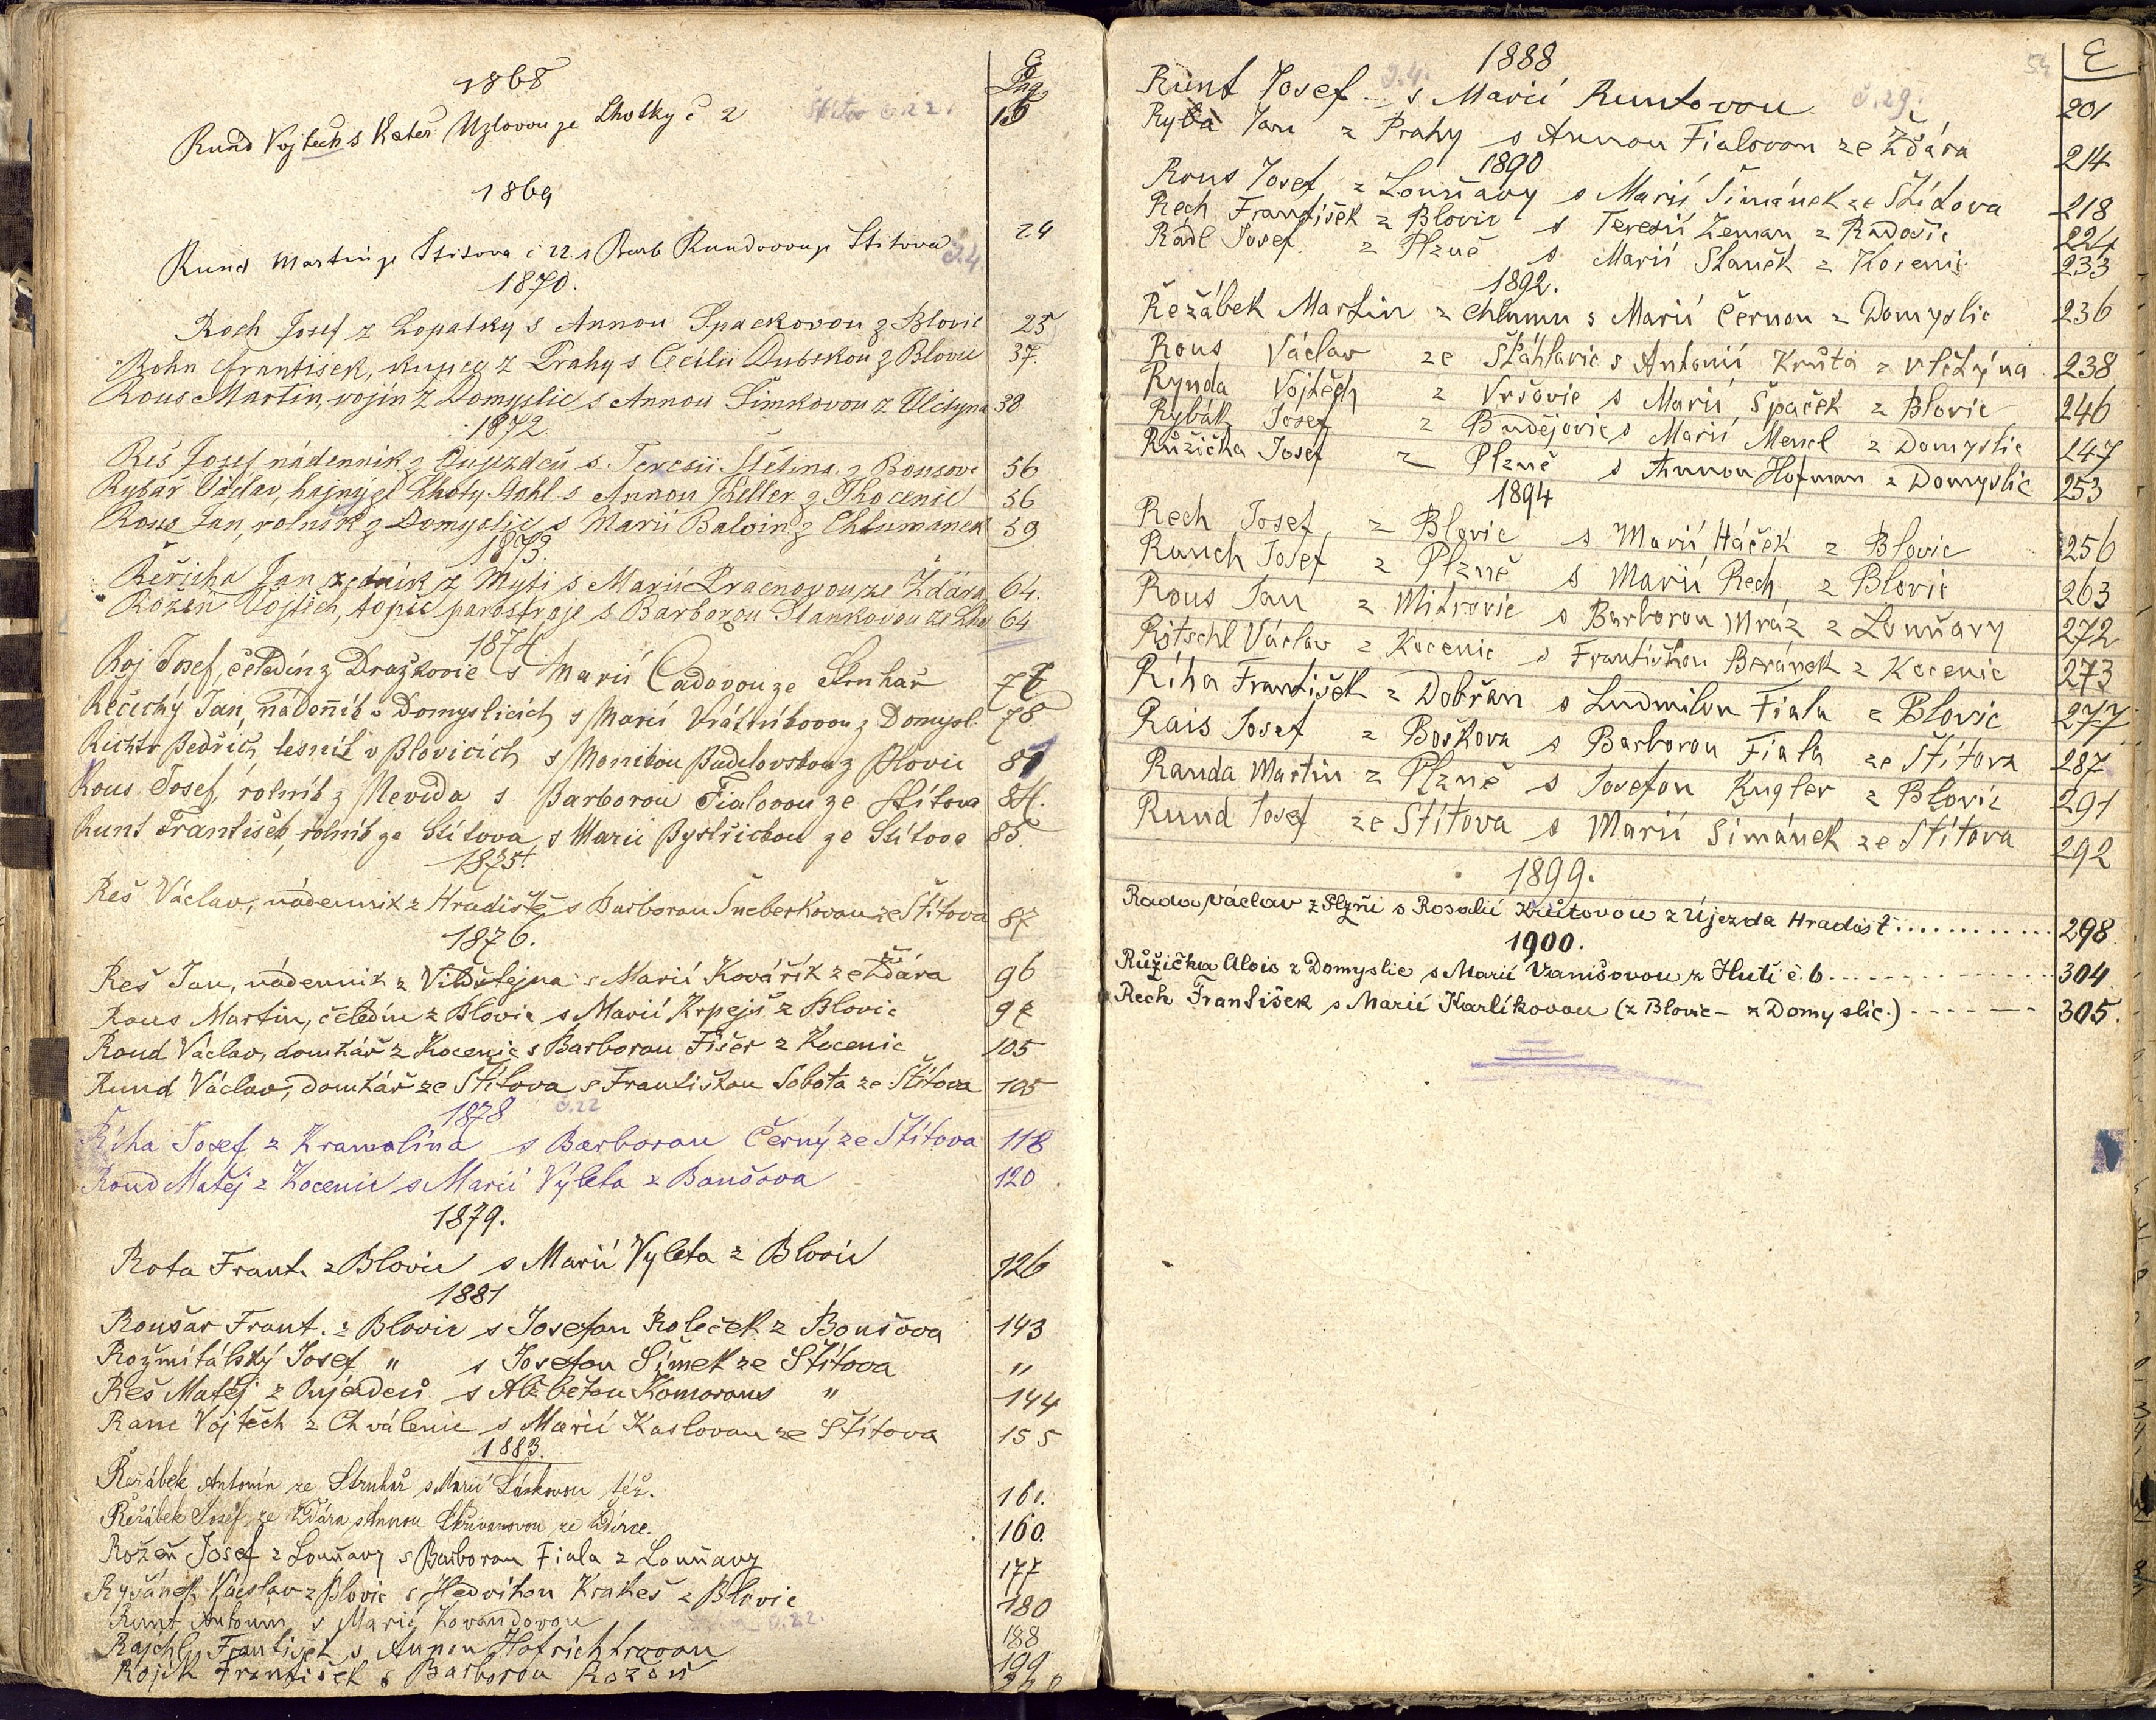 1868
Pag.
Rund Vojtěch s Kateř Uzlovou ze Lhotky č 2
19
1869
Rund Martin ze Štitova č 22 s Barb Rundovou ze Štitova
24
1870.
Roch Josef z Lopatky s Annou Spackovou z Blovic 25
Rohn František, kupec z Prahy s Cecilii Dubskou z Blovic 37.
Rous Martin, vojín z Domyslic s Annou Šimkovou z Vlčtyna 38
1872.
Reš Josef nádenník z Oujezdců s Teresii Štětina z Bousova 56
Rybář Václav, hajný ze Lhoty s Annou Keller z Kocenic 56
Rous Jan, rolník z Domyslic s Marii Balvín z Chlumánek 59
1873.
Řeřicha Jan, zedník z Mýti s Marii Pracnovou ze Ždára 64.
Rožeň Vojtěch, topič parostroje s Barborou Stankovou ze Lho 64
1874
Roj Josef, čeledín z Dražkovic s Marií Cadovou ze Struhař 77
Řečický Jan, nádeník v Domyslicích s Marií Vrátníkovou z Domysl. 78
Richtr Bedřich, lesník v Blovicích s Monikou Budilovskou z Blovic 81
Rous Josef, rolník z Nevida s Barborou Fialovou ze Štítova 84.
Runt František, rolník ze Štítova s Marií Bystřickou ze Štítova 85.
1875.
Reš Václav, nádenník z Hradiště s Barborou Šneberkovou ze Štítova 87
1876.
Reš Jan, nádenník z Vildštejna s Marií Kovářík ze Ždára 96
Rous Martin, čeledín z Blovic s Marií Krpejš z Blovic 97
Roud Václav, domkář z Kocenic s Barborou Fišer z Kocenic 105
Rund Václav, domkář ze Štítova s Františkou Sobota ze Štítova 105
1878
č.22
Říha Josef z Kramolína s Barborou Černý ze Štítova 118
Roud Matěj z Kocenic s Marií Výleta z Bousova 120
1879.
Rota Frant. z Blovic s Marií Vyleta z Blovic 126
1881
Roušar Frant. z Blovic s Josefou Roleček z Boušova 143
Rožmitálský Josef " s Josefou Šimek ze Štítova "
Reš Matěj z Oujezdců s Alžbětou Komorous " 144
Ranc Vojtěch z Chválenic s Marií Kaslovou ze Štítova 155
1883.
Řeřábek Antonín ze Struhař s Marií Láskovou též. 160.
Řeřábek Josef ze Ždára s Annou Skřivanovou ze Ždírce. 160.
Rožeň Josef z Louňavy s Barborou Fiala z Louňavy 177
Ryšánek Václav z Blovic s Hedvikou Krakeš z Blovic 180
Runt Antonín s Marií Kovandovou 188
Rajchl František s Annou Hofrichtrovou 199
Rojík František s Barborou Rožeň
1888
54
Runt Josef s Marií Runtovou č.29. 201
Ryba Jan z Prahy s Annou Fialovou ze Ždára 214
1890
Rous Josef z Louňavy s Marií Šimánek ze Štítova 218
Rech František z Blovic s Teresií Zeman z Radošic 224
Rádl Josef z Plzně s Marií Staněk z Kocenic 233
1892.
Řežábek Martin z Chlumu s Marií Černou z Domyslic 236
Rous Václav ze Štáhlavic s Antonií Krůta z Vlčtýna 238
Rynda Vojtěch z Vršovic s Marií Špaček z Blovic 246
Rybák Josef z Budějovic s Marií Mencl z Domyslic 247
Růžička Josef z Plzně s Annou Hofman z Domyslic 253
1894
Rech Josef z Blovic s Marií Háček z Blovic 256
Runch Josef z Plzně s Marií Rech z Blovic 263
Rous Jan z Mitrovic s Barborou Mráz z Louňavy 272
Rötschl Václav z Kocenic s Františkou Beránek z Kocenic 273
Říha František z Dobřan s Ludmilou Fiala z Blovic 277
Rais Josef z Boškova s Barborou Fiala ze Štítova 287
Randa Martin z Plzně s Josefou Kugler z Blovic 291
Rund Josef ze Štítova s Marií Šimánek ze Štítova 292
1899.
Rada Václav z Plzni s Rosalií Krůtovou z Újezda Hradišt 298.
1900.
Růžička Alois z Domyslic s Marií Vranišovou z Hutí č. 6 304.
Rech František s Marií Karlíkovou (z Blovic - z Domyslic.) 305.